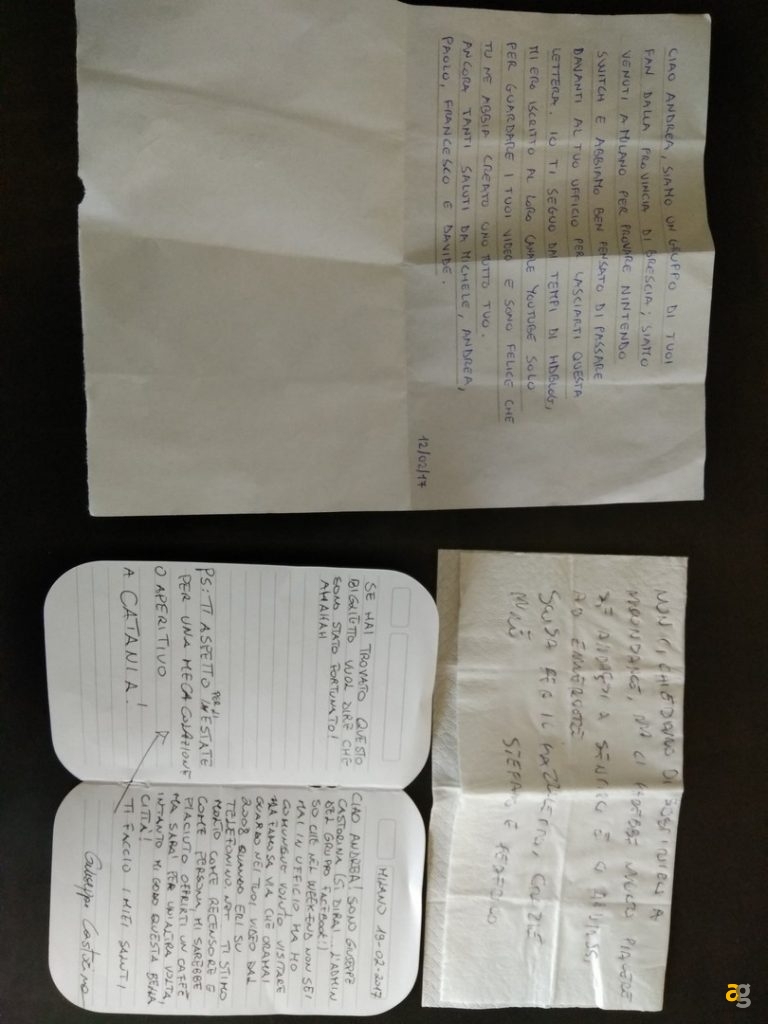 CIAO ANDREA, SIAMO UN GRUPPO DI TUOI
FAN DALLA PROVINCIA DI BRESCIA; SIAMO
VENUTI A MILANO PER PROVARE NINTENDO
SWITCH E ABBIAMO BEN PENSATO DI PASSARE
DAVANTI AL TUO UFFICIO PER LASCIARTI QUESTA
LETTERA. IO TI SEGUO DAI TEMPI DI HDBLOG,
MI ERO ISCRITTO AL LORO CANALE YOUTUBE SOLO
PER GUARDARE I TUOI VIDEO E SONO FELICE CHE
TU NE ABBIA CREATO UNO TUTTO TUO.
ANCORA TANTI SALUTI DA MICHELE, ANDREA,
PAOLO, FRANCESCO E DAVIDE.
12/02/17
NON TI CHIEDIAMO DI
MA CI FAREBBE MOLTO PIACERE
SCUSA PER IL FAZZOLETTO, GRAZIE
STEFANO E FEDERICO
SE HAI TROVATO QUESTO
BIGLIETTO VUOL DIRE CHE
SONO STATO FORTUNATO!
AHAHAH
PS: TI ASPETTO PER L'ESTATE
PER UNA MEGA COLAZIONE
O APERITIVO
A CATANIA!
MILANO 18-02-2017
CIAO ANDREA! SONO GIUSEPPE
CASTORINA (SI DIRAI... L'ADMIN
DEL GRUPPO FACEBOOK!)
SO CHE NEL WEEKEND NON SEI
MAI IN UFFICIO MA HO
COMUNQUE VOLUTO VISITARE
LA FAMOSA VIA CHE ORAMAI
GUARDO NEI TUOI VIDEO DAL
2008 QUANDO ERI SU
TELEFONINO.NET TI STIMO
MOLTO COME RECENSORE E
COME PERSONA, MI SAREBBE
PIACIUTO OFFRIRTI UN CAFFÈ
MA SARÀ PER UN'ALTRA VOLTA,
INTANTO MI GODO QUESTA BELLA
CITTÀ!
TI FACCIO I MIEI SALUTI,
Giuseppe Castorina
ag